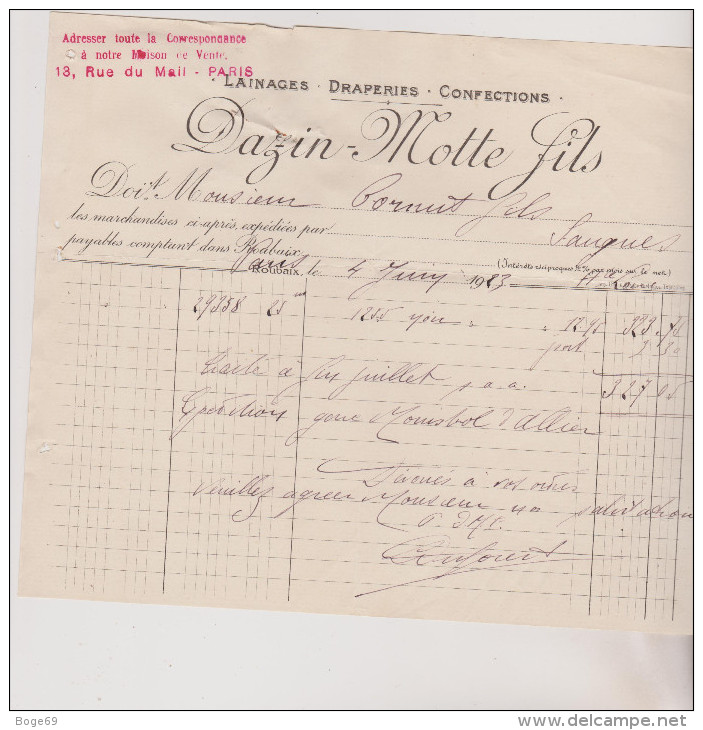 Adresser toute la Correspondance
à notre Maison de Vente,
13, Rue du Mail - PARIS
· LAINAGES · DRAPERIES · CONFECTIONS ·
Dazin-Motte fils
Doit Monsieur Cornut fils
les marchandises ci-après, expédiées par Saugues
payables comptant dans Roubaix
(Intérêts réciproques ½% par mois sur le net.)
Paris
Roubaix, le 4 Juin 1923
29358 25 1255 12.95 323 75
port 3 30
Traité à fin juillet s.a.a. 327 05
Expédition gare Monistrol d'Allier
Dévoués à vos ordres
Veuillez agréer Monsieur nos salutations
P. D M f.
Boge69
www.delcampe.net